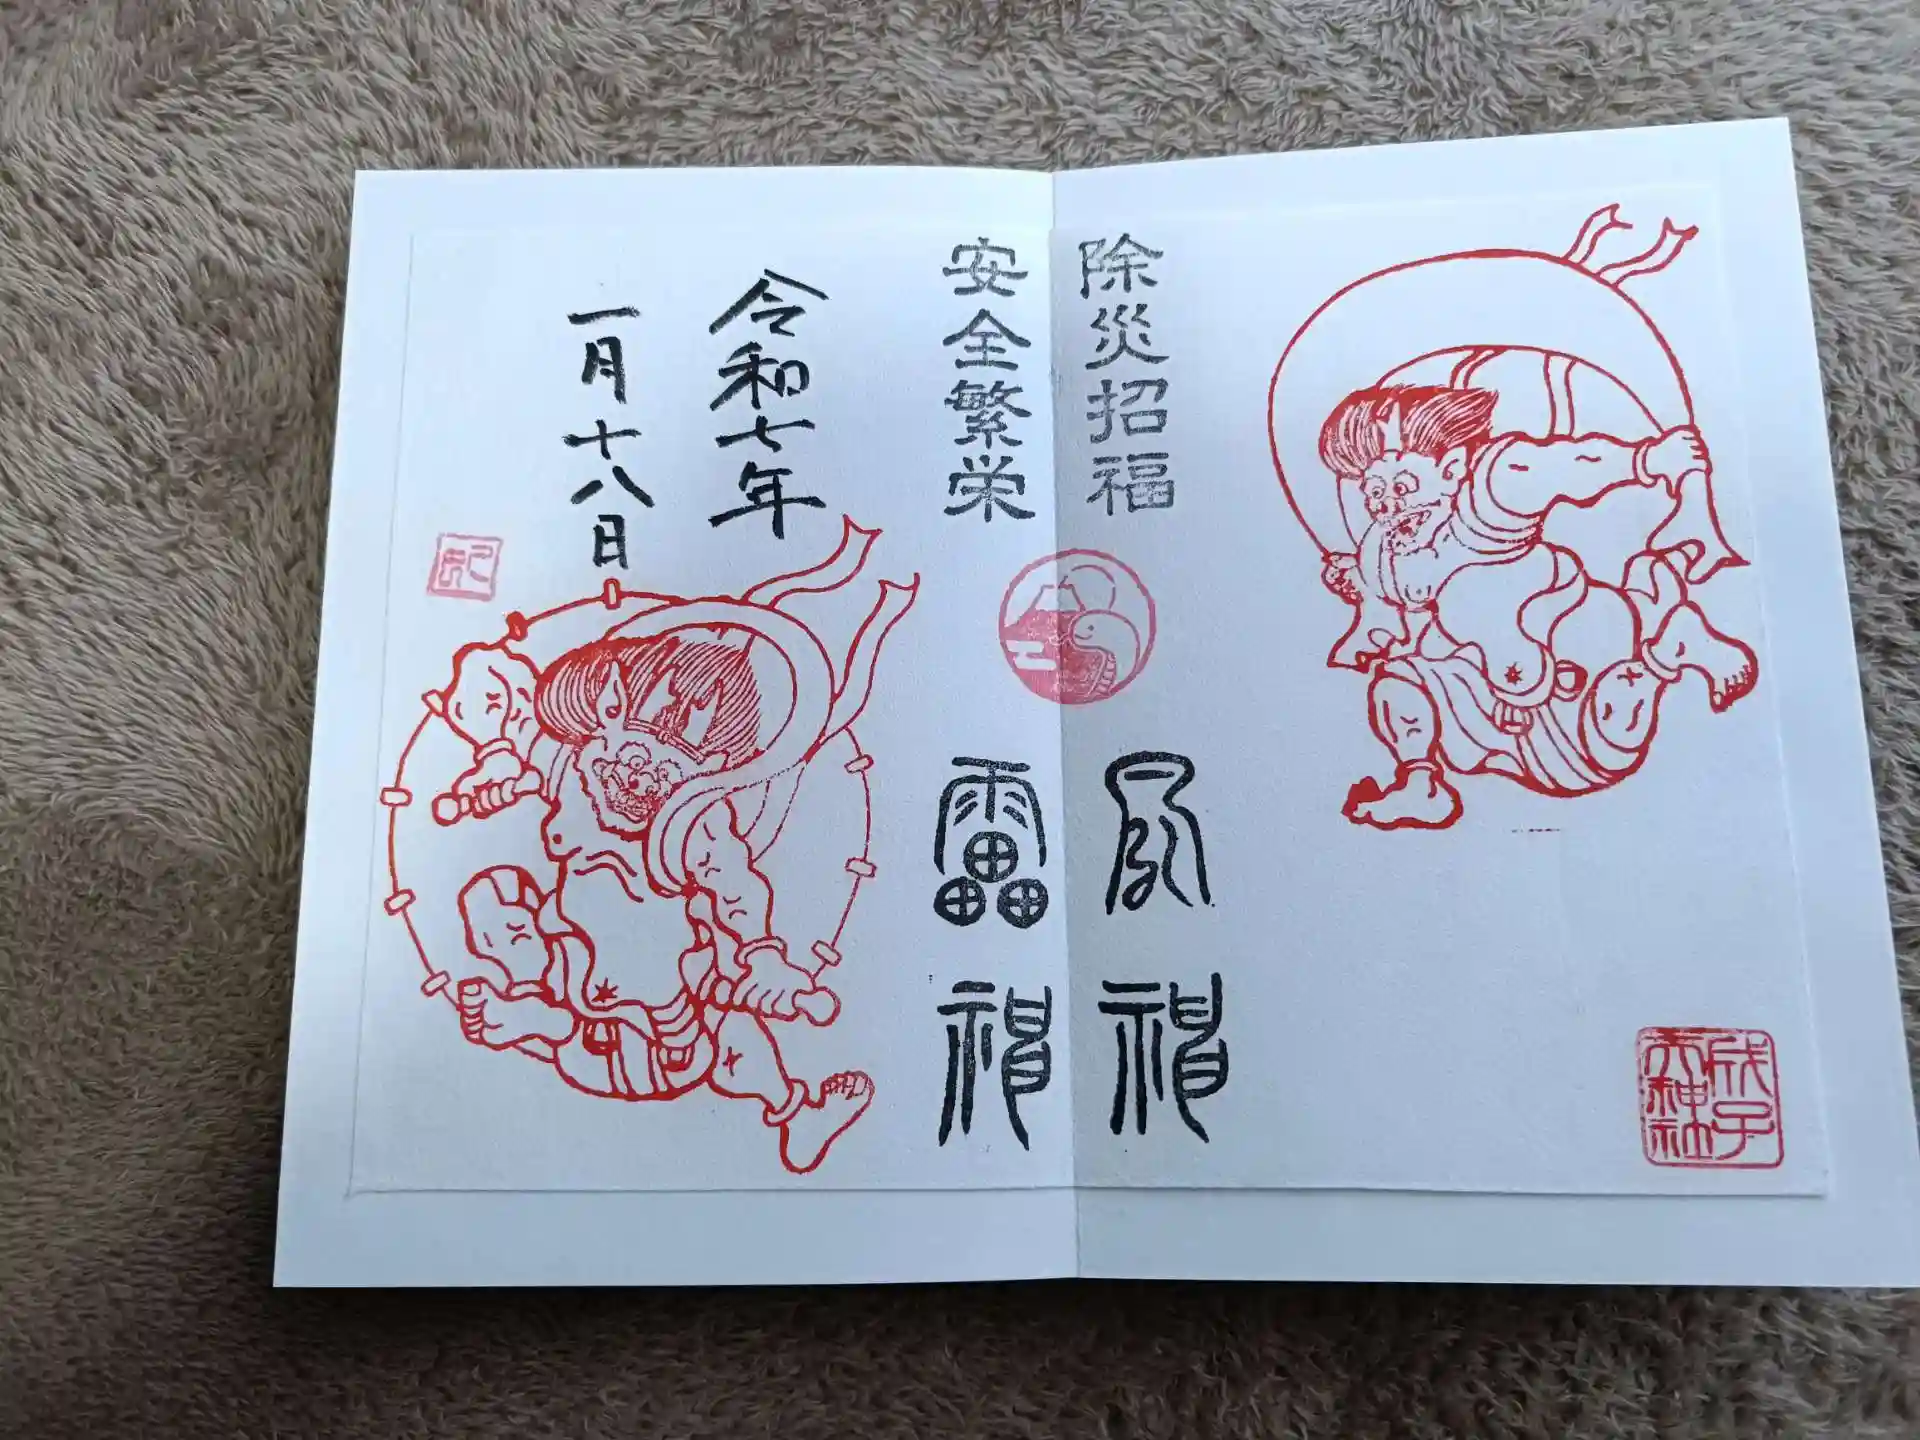 除災招福
風神
安全繁栄
雷神
令和七年
一月十八日
成子
天神社